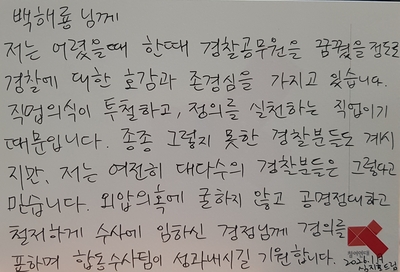 백해룡 님께
저는 어렸을때 한때 경찰공무원을 꿈꿨을 정도로
경찰에 대한 호감과 존경심을 가지고 있습니다.
직업의식이 투철하고, 정의를 실천하는 직업이기
때문입니다. 종종 그렇지 못한 경찰분들도 계시
지만, 저는 여전히 대다수의 경찰분들은 그렇다고
믿습니다. 외압의혹에 굴하지 않고 공명정대하고
철저하게 수사에 임하신 경정님께 경의를
표하며 합동수사팀이 성과내시길 기원합니다.